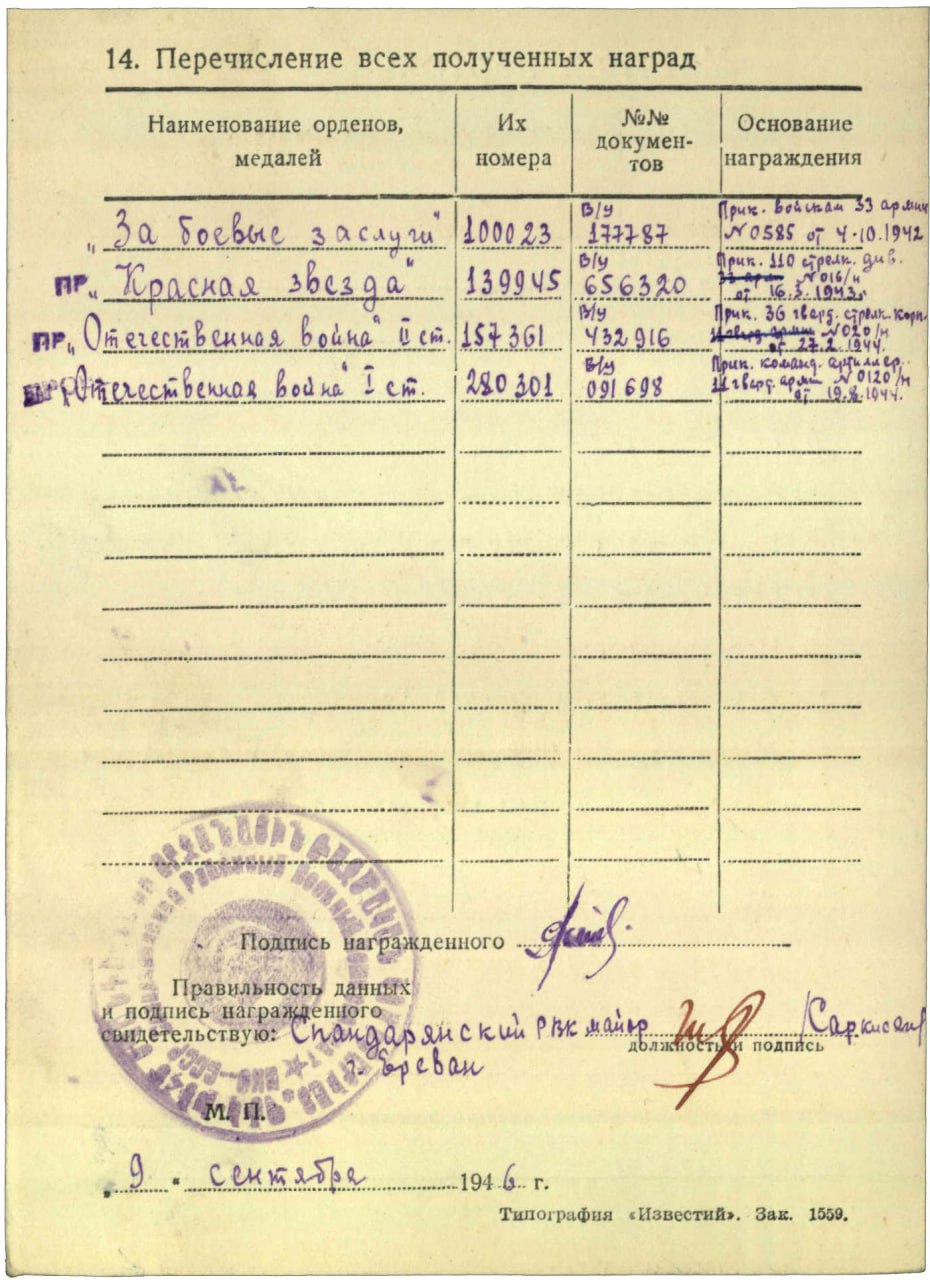 14. Перечисление всех полученных наград
Наименование орденов, медалей
Их номера
№№ документов
Основание награждения
„За боевые заслуги" 100023 В/У 177787 Прик. войскам 33 армии N 0585 от 4.10.1942
ПР „Красная звезда" 139945 В/У 656320 Прик. 110 стрелк. див. N 016/н от 16.3.1943г.
ПР „Отечественная война" II ст. 157361 В/У 432916 Прик. 36 гвард. стрелк. корп. N 020/н от 27.2.1944.
„Отечественная война" I ст. 280301 В/У 091698 Прик. команд. артиллер. 11 гвард. армии N 0120/н от 19.8.1944.
Подпись награжденного
Правильность данных
и подпись награжденного
свидетельствую: Спандарянский РВК майор /Саркисян
должность и подпись
г. Ереван
М. П.
„9" сентября 1946 г.
Типография «Известий». Зак. 1559.